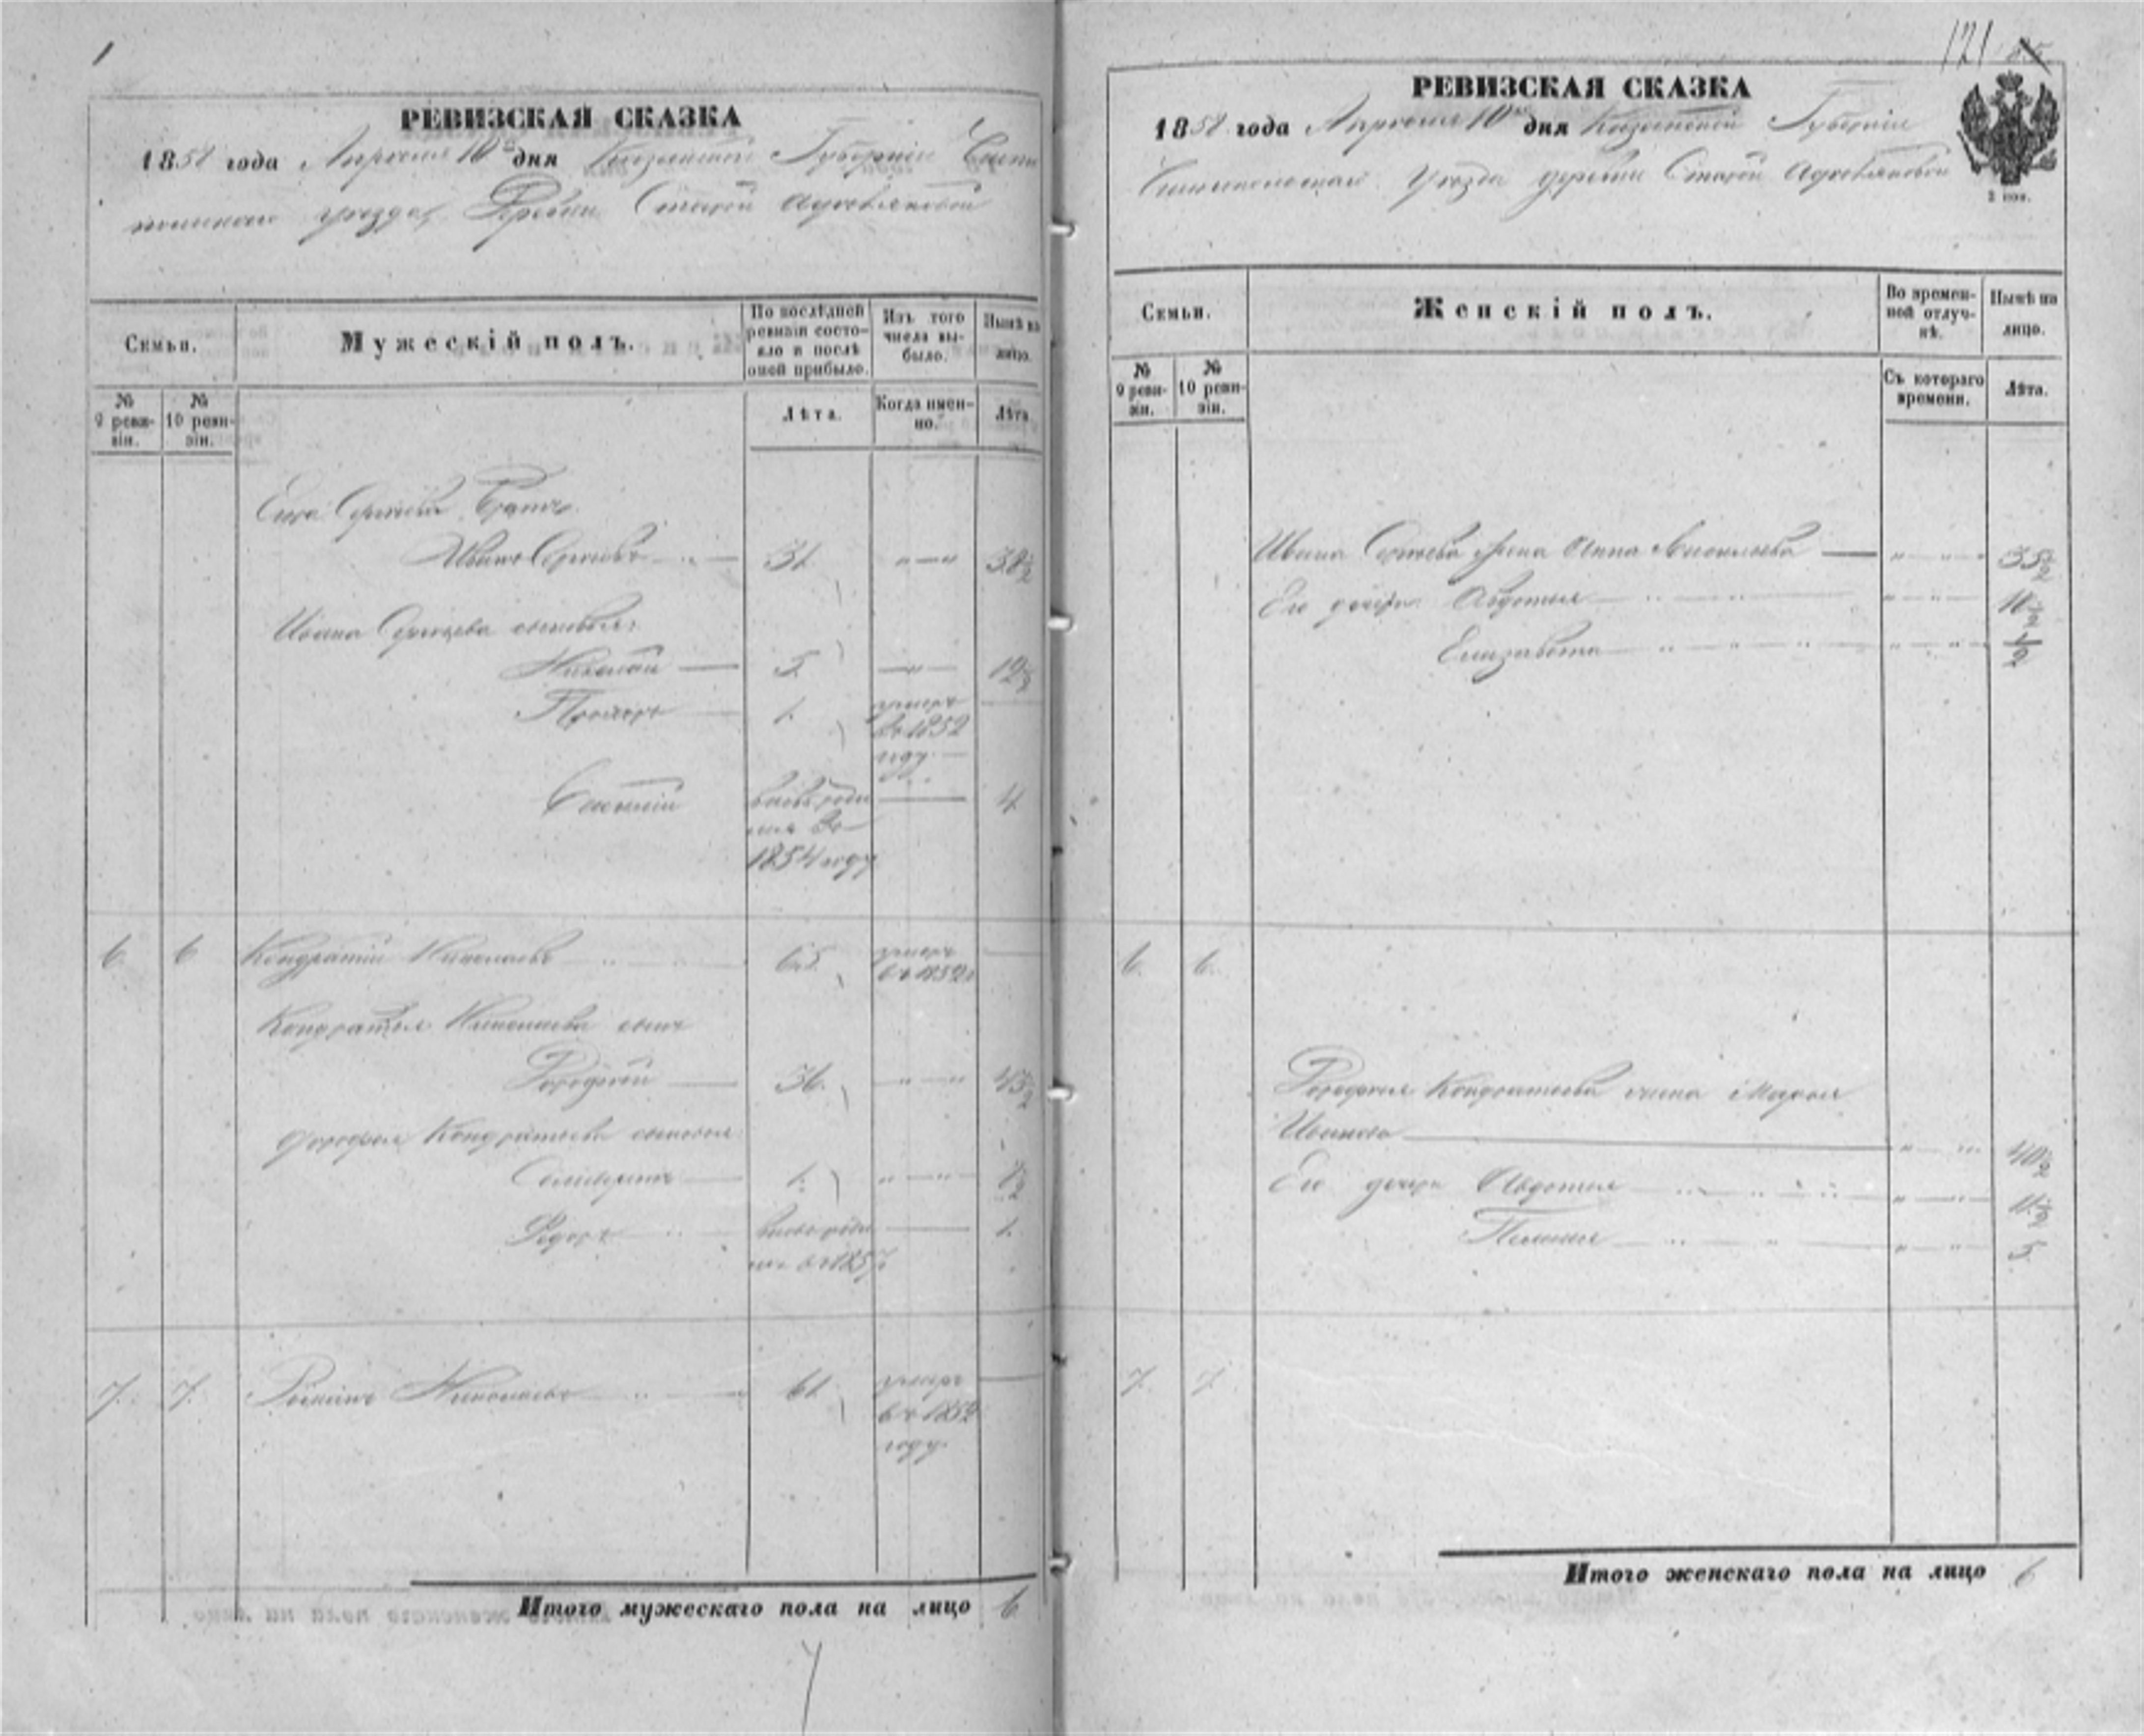 121
РЕВИЗСКАЯ СКАЗКА
1858 года Апреля 10го дня Казанской Губернии Спас
Уезда Деревни Старой
Семьи.
Мужескій полъ.
По послѣдней ревизіи состояло и послѣ оной прибыло.
Изъ того числа выбыло.
Нынѣ на лицо.
№ 9 ревизіи.
№ 10 ревизіи.
Лѣта.
Когда именно.
Лѣта.
Братъ
Иванъ Сергѣевъ 31. 38½
Ивана Сергѣева сыновья
Николай 5. 12½
Прохоръ 1. умеръ въ 1852 году
вновь родился въ 1854 году 4
6. 6. Кондратій Николаевъ 65. умеръ въ 1852
Кондратія Николаева сынъ
Дорофей 36. 43½
Дорофея Кондратьева сыновья
1. 8½
Федоръ вновь родился въ 1857 1.
7. 7. Романъ Николаевъ 61. умеръ въ 1854 году
Итого мужескаго пола на лицо 6
РЕВИЗСКАЯ СКАЗКА
1858 года Апреля 10го дня Казанской Губерніи
Уезда деревни Старой
2 коп.
Семьи.
Женскій полъ.
Во временной отлучкѣ.
Нынѣ на лицо.
№ 9 ревизіи.
№ 10 ревизіи.
Съ котораго времени.
Лѣта.
Ивана Сергѣева жена Анна 35½
Его дочери Авдотья 11½
Елизавета ½
6. 6.
Дорофея Кондратьева жена Марья
Иванова 40½
Его дочери Авдотья 11½
Пелагея 5
7. 7.
Итого женскаго пола на лицо 6